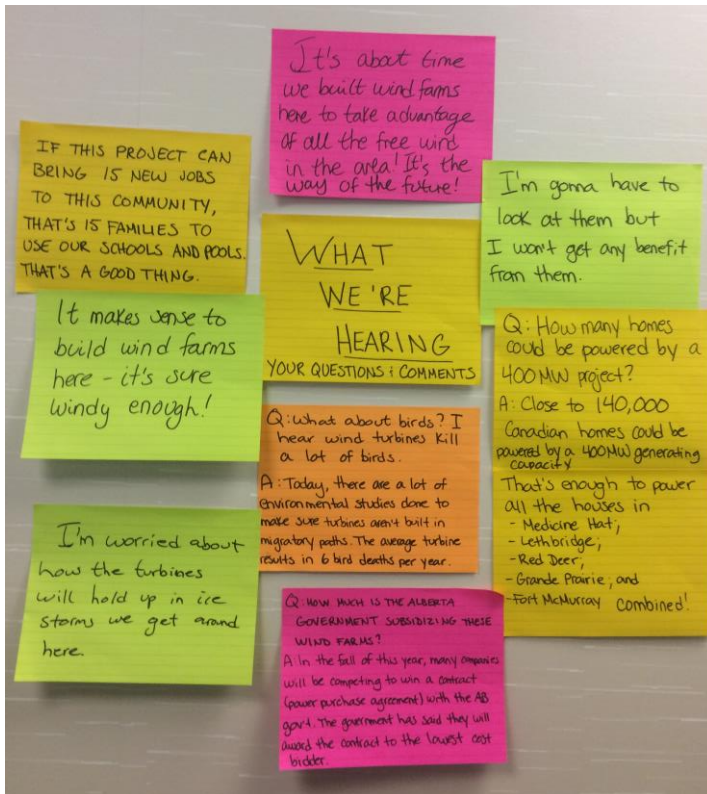 It's about time
we built wind farms
here to take advantage
of all the free wind
in the area! It's the
way of the future!
IF THIS PROJECT CAN
BRING 15 NEW JOBS
TO THIS COMMUNITY,
THAT'S 15 FAMILIES TO
USE OUR SCHOOLS AND POOLS.
THAT'S A GOOD THING.
I'm gonna have to
look at them but
I won't get any benefit
from them.
WHAT
WE'RE
HEARING
YOUR QUESTIONS & COMMENTS
It makes sense to
build wind farms
here - it's sure
windy enough!
Q: How many homes
could be powered by a
400 MW project?
A: Close to 140,000
Canadian homes could be
powered by a 400MW generating
capacity
That's enough to power
all the houses in
- Medicine Hat;
- Lethbridge;
- Red Deer;
- Grande Prairie; and
- Fort McMurray combined!
Q: What about birds? I
hear wind turbines kill
a lot of birds.
A: Today, there are a lot of
environmental studies done to
make sure turbines aren't built in
migratory paths. The average turbine
results in 6 bird deaths per year.
I'm worried about
how the turbines
will hold up in ice
storms we get around
here.
Q: HOW MUCH IS THE ALBERTA
GOVERNMENT SUBSIDIZING THESE
WIND FARMS?
A In the fall of this year, many companies
will be competing to win a contract
(power purchase agreement) with the AB
gov't. The government has said they will
award the contract to the lowest cost
bidder.